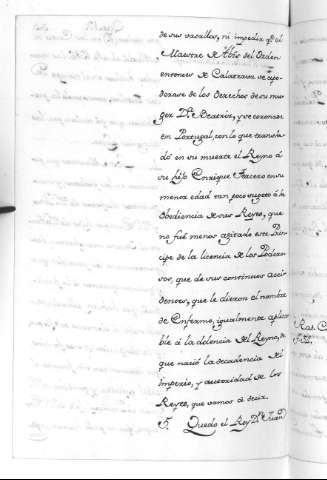 de sus vasallos, ni impedir q.e el
Maestre de Abis del Orden
entonces de Calatrava se apo-
derase de los derechos de su mu-
ger D.ª Beatriz, y se coronase
en Portugal, con lo que transla-
dó en su muerte el Reyno á
su hijo Enrrique Tercero en su
menor edad tan poco sugeto á la
obediencia de sus Reyes, que
no fué menos agitado este Prin-
cipe de la licencia de los Podero-
sos, que de sus continuos acci-
dentes, que le dieron el nombre
de Enfermo, igualmente aplica-
ble á la dolencia del Reyno, de
que nació la decadencia del
Imperio, y autoridad de los
Reyes, que vamos á decir.
Quedó el Rey D.n Juan